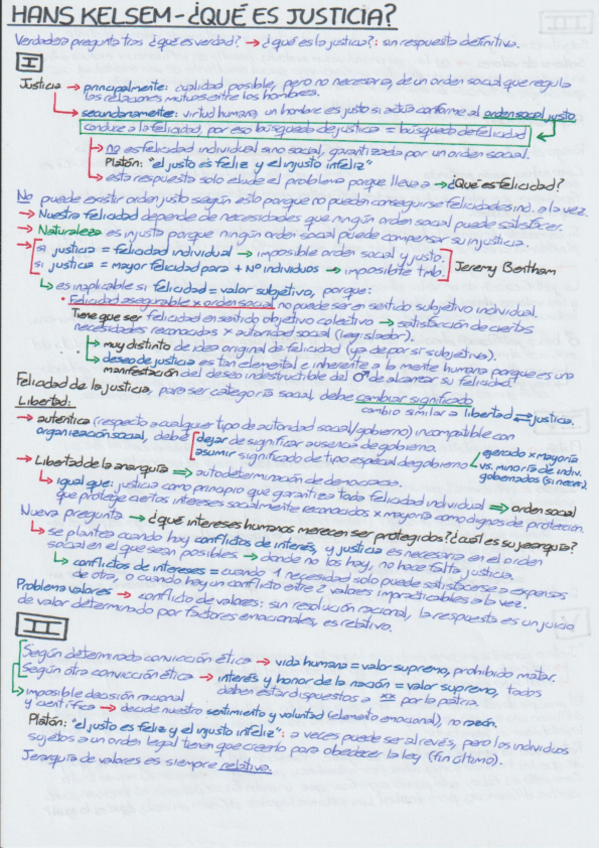 HANS KELSEM - ¿QUÉ ES JUSTICIA?
Verdadera pregunta tras ¿qué es verdad? → ¿qué es la justicia?: sin respuesta definitiva.
I
Justicia → principalmente: cualidad posible, pero no necesaria, de un orden social que regula
las relaciones mutuas entre los hombres.
→ secundariamente: virtud humana, un hombre es justo si actúa conforme al orden social justo
conduce a la felicidad, por eso búsqueda de justicia = búsqueda de felicidad
→ no es felicidad individual sino social, garantizada por un orden social.
Platón: "el justo es feliz y el injusto infeliz"
→ esta respuesta solo elude el problema porque lleva a → ¿Qué es felicidad?
No puede existir orden justo según esto porque no pueden conseguirse felicidades ind. a la vez.
→ Nuestra felicidad depende de necesidades que ningún orden social puede satisfacer.
→ Naturaleza es injusta porque ningún orden social puede compensar su injusticia.
→ si justicia = felicidad individual → imposible orden social y justo.
si justicia = mayor felicidad para + Nº individuos → imposible tmb.
Jeremy Bentham
→ es inaplicable si felicidad = valor subjetivo, porque:
• Felicidad asegurable x orden social no puede ser en sentido subjetivo individual.
Tiene que ser felicidad en sentido objetivo colectivo → satisfacción de ciertas
necesidades reconocidas x autoridad social (legislador).
→ muy distinto de idea original de felicidad (ya de por sí subjetiva).
→ deseo de justicia es tan elemental e inherente a la mente humana porque es una
manifestación del deseo indestructible del ♂ de alcanzar su felicidad.
Felicidad de la justicia, para ser categoría social, debe cambiar significado
cambio similar a libertad ⇄ justicia.
Libertad:
→ auténtica (respecto a cualquier tipo de autoridad social/gobierno) incompatible con
organización social, debe dejar de significar ausencia de gobierno.
asumir significado de tipo especial de gobierno
ejercido x mayoría
vs. minoría de indiv.
gobernados (si necem.).
→ Libertad de la anarquía ⇒ autodeterminación de democracia.
→ igual que: justicia como principio que garantiza toda felicidad individual ⇒ orden social
que protege ciertos intereses socialmente reconocidos x mayoría como dignos de protección.
Nueva pregunta → ¿qué intereses humanos merecen ser protegidos? ¿cuál es su jerarquía?
→ se plantea cuando hay conflictos de interés, y justicia es necesaria en el orden
social en el que sean posibles. → donde no los hay, no hace falta justicia.
→ conflictos de intereses = cuando 1 necesidad solo puede satisfacerse a expensas
de otra, o cuando hay un conflicto entre 2 valores impracticables a la vez.
Problema valores → conflicto de valores: sin resolución racional, la respuesta es un juicio
de valor determinado por factores emocionales, es relativo.
II
Según determinada convicción ética → vida humana = valor supremo, prohibido matar.
Según otra convicción ética → interés y honor de la nación = valor supremo, todos
deben estar dispuestos a xx por la patria.
→ imposible decisión racional
y científica → decide nuestro sentimiento y voluntad (elemento emocional), no razón.
Platón: "el justo es feliz y el injusto infeliz": a veces puede ser al revés, pero los individuos
sujetos a un orden legal tienen que creerlo para obedecer la ley (fin último).
Jerarquía de valores es siempre relativa.